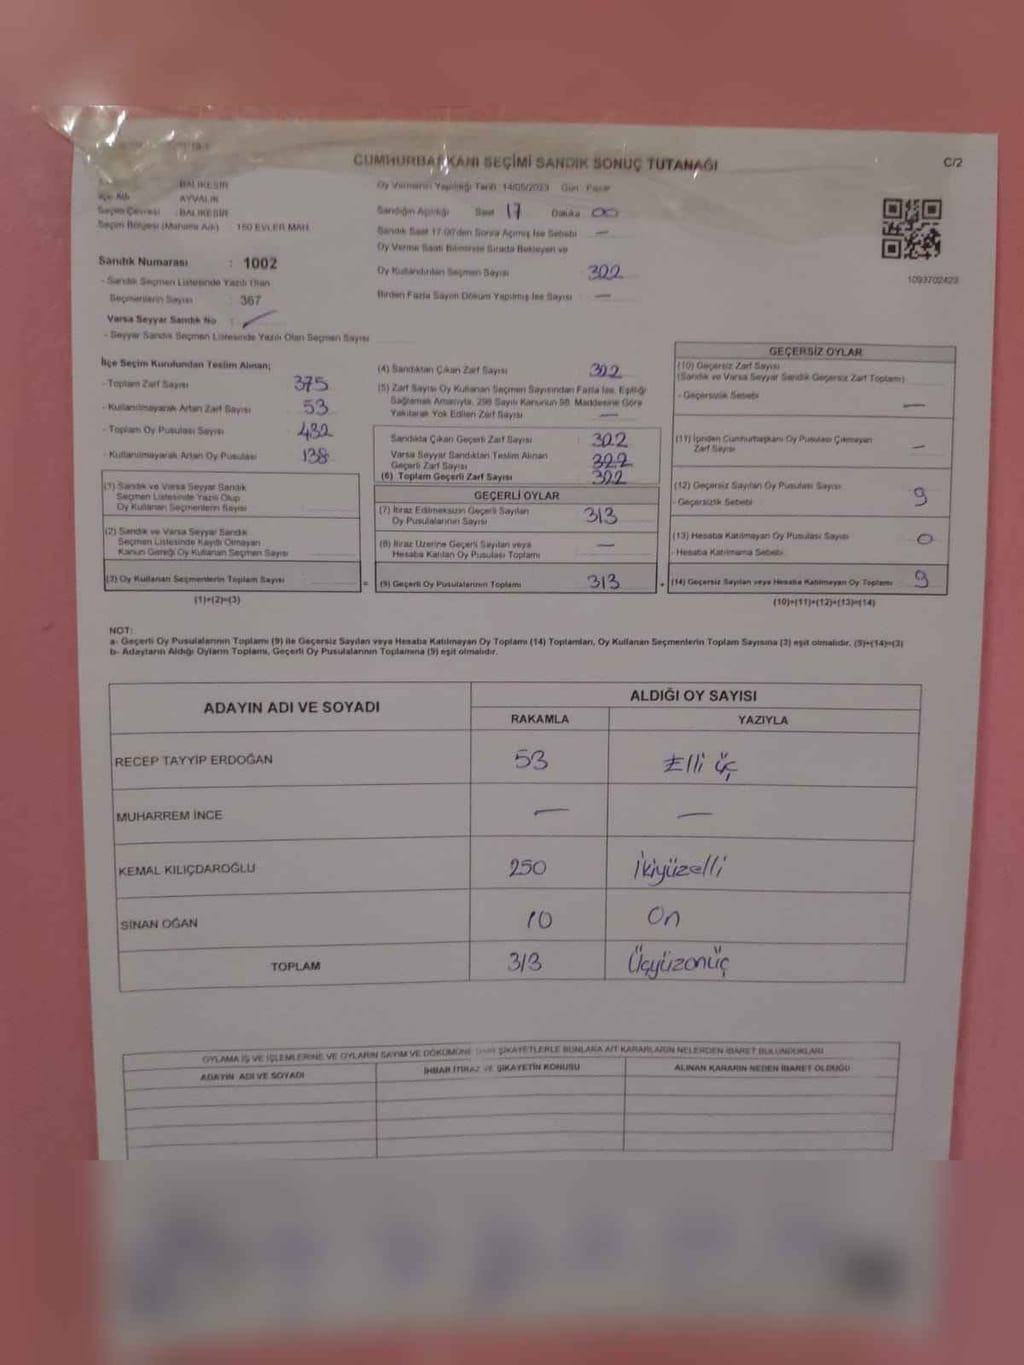 CUMHURBAŞKANI SEÇİMİ SANDIK SONUÇ TUTANAĞI
C/2
BALIKESİR
İlçe Adı AYVALIK
Seçim Çevresi : BALIKESİR
Seçim Bölgesi (Mahalle Adı) 150 EVLER MAH.
Oy Vermenin Yapıldığı Tarih : 14/05/2023 Gün : Pazar
Sandığın Açıldığı Saat 17 Dakika 00
Sandık Saat 17:00'den Sonra Açılmış İse Sebebi —
Oy Verme Saati Bitiminde Sırada Bekleyen ve
Oy Kullandırılan Seçmen Sayısı 322
Birden Fazla Sayım Döküm Yapılmış İse Sayısı —
1093702423
Sandık Numarası : 1002
- Sandık Seçmen Listesinde Yazılı Olan
Seçmenlerin Sayısı : 367
Varsa Seyyar Sandık No :
- Seyyar Sandık Seçmen Listesinde Yazılı Olan Seçmen Sayısı
İlçe Seçim Kurulundan Teslim Alınan;
- Toplam Zarf Sayısı 375
- Kullanılmayarak Artan Zarf Sayısı 53
- Toplam Oy Pusulası Sayısı
- Kullanılmayarak Artan Oy Pusulası 138
(1) Sandık ve Varsa Seyyar Sandık
Seçmen Listesinde Yazılı Olup
Oy Kullanan Seçmenlerin Sayısı
(2) Sandık ve Varsa Seyyar Sandık
Seçmen Listesinde Kaydı Olmayan
Kanun Gereği Oy Kullanan Seçmen Sayısı
(3) Oy Kullanan Seçmenlerin Toplam Sayısı
(1)+(2)=(3)
(4) Sandıktan Çıkan Zarf Sayısı 322
(5) Zarf Sayısı Oy Kullanan Seçmen Sayısından Fazla İse, Eşitliği
Sağlamak Amacıyla, 298 Sayılı Kanunun 98. Maddesine Göre
Yakılarak Yok Edilen Zarf Sayısı —
Sandıkta Çıkan Geçerli Zarf Sayısı : 322
Varsa Seyyar Sandıktan Teslim Alınan
Geçerli Zarf Sayısı 322
(6) Toplam Geçerli Zarf Sayısı 322
GEÇERLİ OYLAR
(7) İtiraz Edilmeksizin Geçerli Sayılan
Oy Pusulalarının Sayısı 313
(8) İtiraz Üzerine Geçerli Sayılan veya
Hesaba Katılan Oy Pusulası Toplamı —
= (9) Geçerli Oy Pusulalarının Toplamı 313
GEÇERSİZ OYLAR
(10) Geçersiz Zarf Sayısı
(Sandık ve Varsa Seyyar Sandık Geçersiz Zarf Toplamı)
- Geçersizlik Sebebi —
(11) İçinden Cumhurbaşkanı Oy Pusulası Çıkmayan
Zarf Sayısı —
(12) Geçersiz Sayılan Oy Pusulası Sayısı
- Geçersizlik Sebebi 9
(13) Hesaba Katılmayan Oy Pusulası Sayısı 0
- Hesaba Katılmama Sebebi
+ (14) Geçersiz Sayılan veya Hesaba Katılmayan Oy Toplamı 9
(10)+(11)+(12)+(13)=(14)
NOT:
a- Geçerli Oy Pusulalarının Toplamı (9) ile Geçersiz Sayılan veya Hesaba Katılmayan Oy Toplamı (14) Toplamları, Oy Kullanan Seçmenlerin Toplam Sayısına (3) eşit olmalıdır. (9)+(14)=(3)
b- Adayların Aldığı Oyların Toplamı, Geçerli Oy Pusulalarının Toplamına (9) eşit olmalıdır.
ADAYIN ADI VE SOYADI
ALDIĞI OY SAYISI
RAKAMLA YAZIYLA
RECEP TAYYİP ERDOĞAN 53 Elli üç
MUHARREM İNCE — —
KEMAL KILIÇDAROĞLU 250 İkiyüzelli
SİNAN OĞAN 10 On
TOPLAM 313 Üçyüzonüç
OYLAMA İŞ VE İŞLEMLERİNE VE OYLARIN SAYIM VE DÖKÜMÜNE DAİR ŞİKAYETLERLE BUNLARA AİT KARARLARIN NELERDEN İBARET BULUNDUKLARI
ADAYIN ADI VE SOYADI İHBAR İTİRAZ VE ŞİKAYETİN KONUSU ALINAN KARARIN NEDEN İBARET OLDUĞU